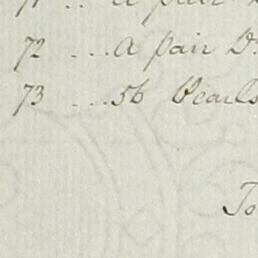 71 .. A pair
72 ... A pair D
73 ... 56 Pearls
To